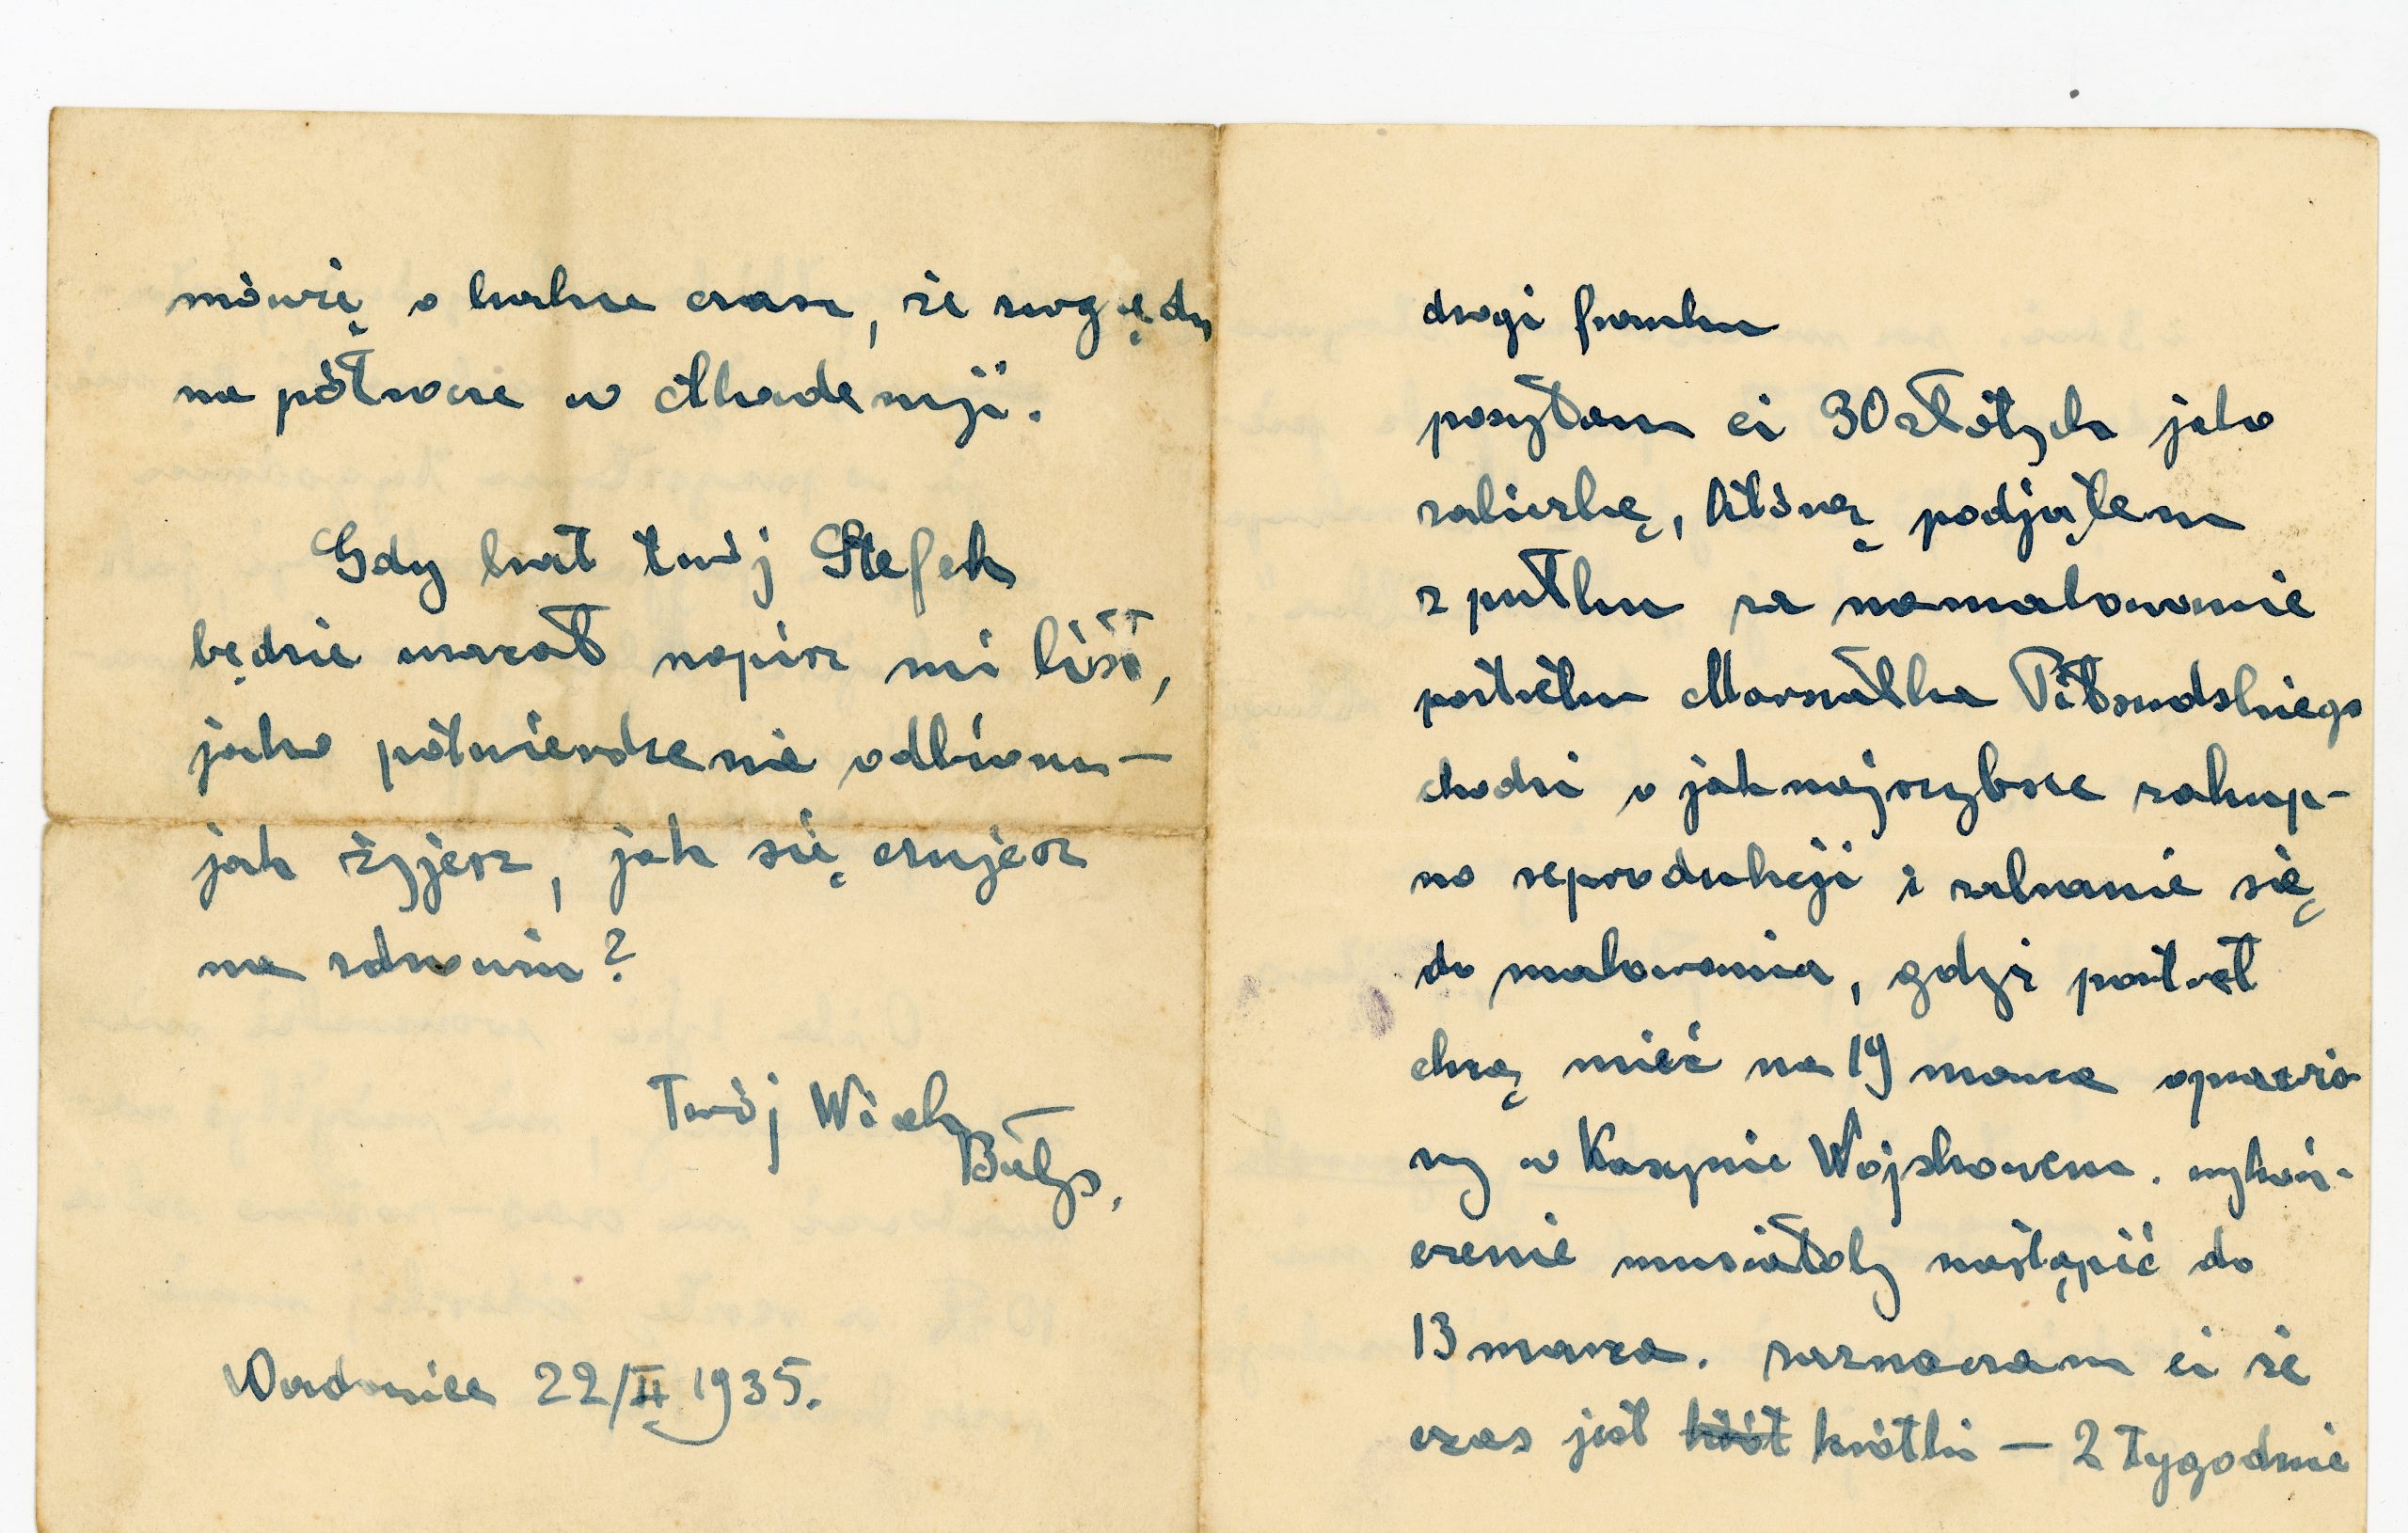 mówię o krótkim czasie, ze względu
na półrocze w Akademji.
Gdy brat twój Stefek
będzie wracał napisz mi list,
jako potwierdzenie odbioru —
jak żyjesz, jak się czujesz
na zdrowiu?
Twój Wicek
Bałys.
Wadowice 22/II 1935.
drogi Franku
posyłam ci 30 złotych jako
zaliczkę, którą podjąłem
z pułku za namalowanie
portretu Marszałka Piłsudskiego
chodzi o jaknajszybsze zakup-
no reprodukcji i zabranie się
do malowania, gdyż portret
chcą mieć na 19 marca oprawio
ny w Kasynie Wojskowem. wykoń-
czenie musiałoby nastąpić do
13 marca. zaznaczam ci że
czas jest krótki — 2 tygodnie